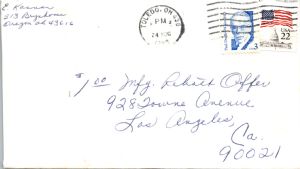 E. Kannan
213 Bryshore
Oregon OH 43616
TOLEDO, OH 436
PM
24 AUG
3
USA
22
$1.00 Mfg. Rebate Offer
928 Towne Avenue
Los Angeles,
Ca.
90021